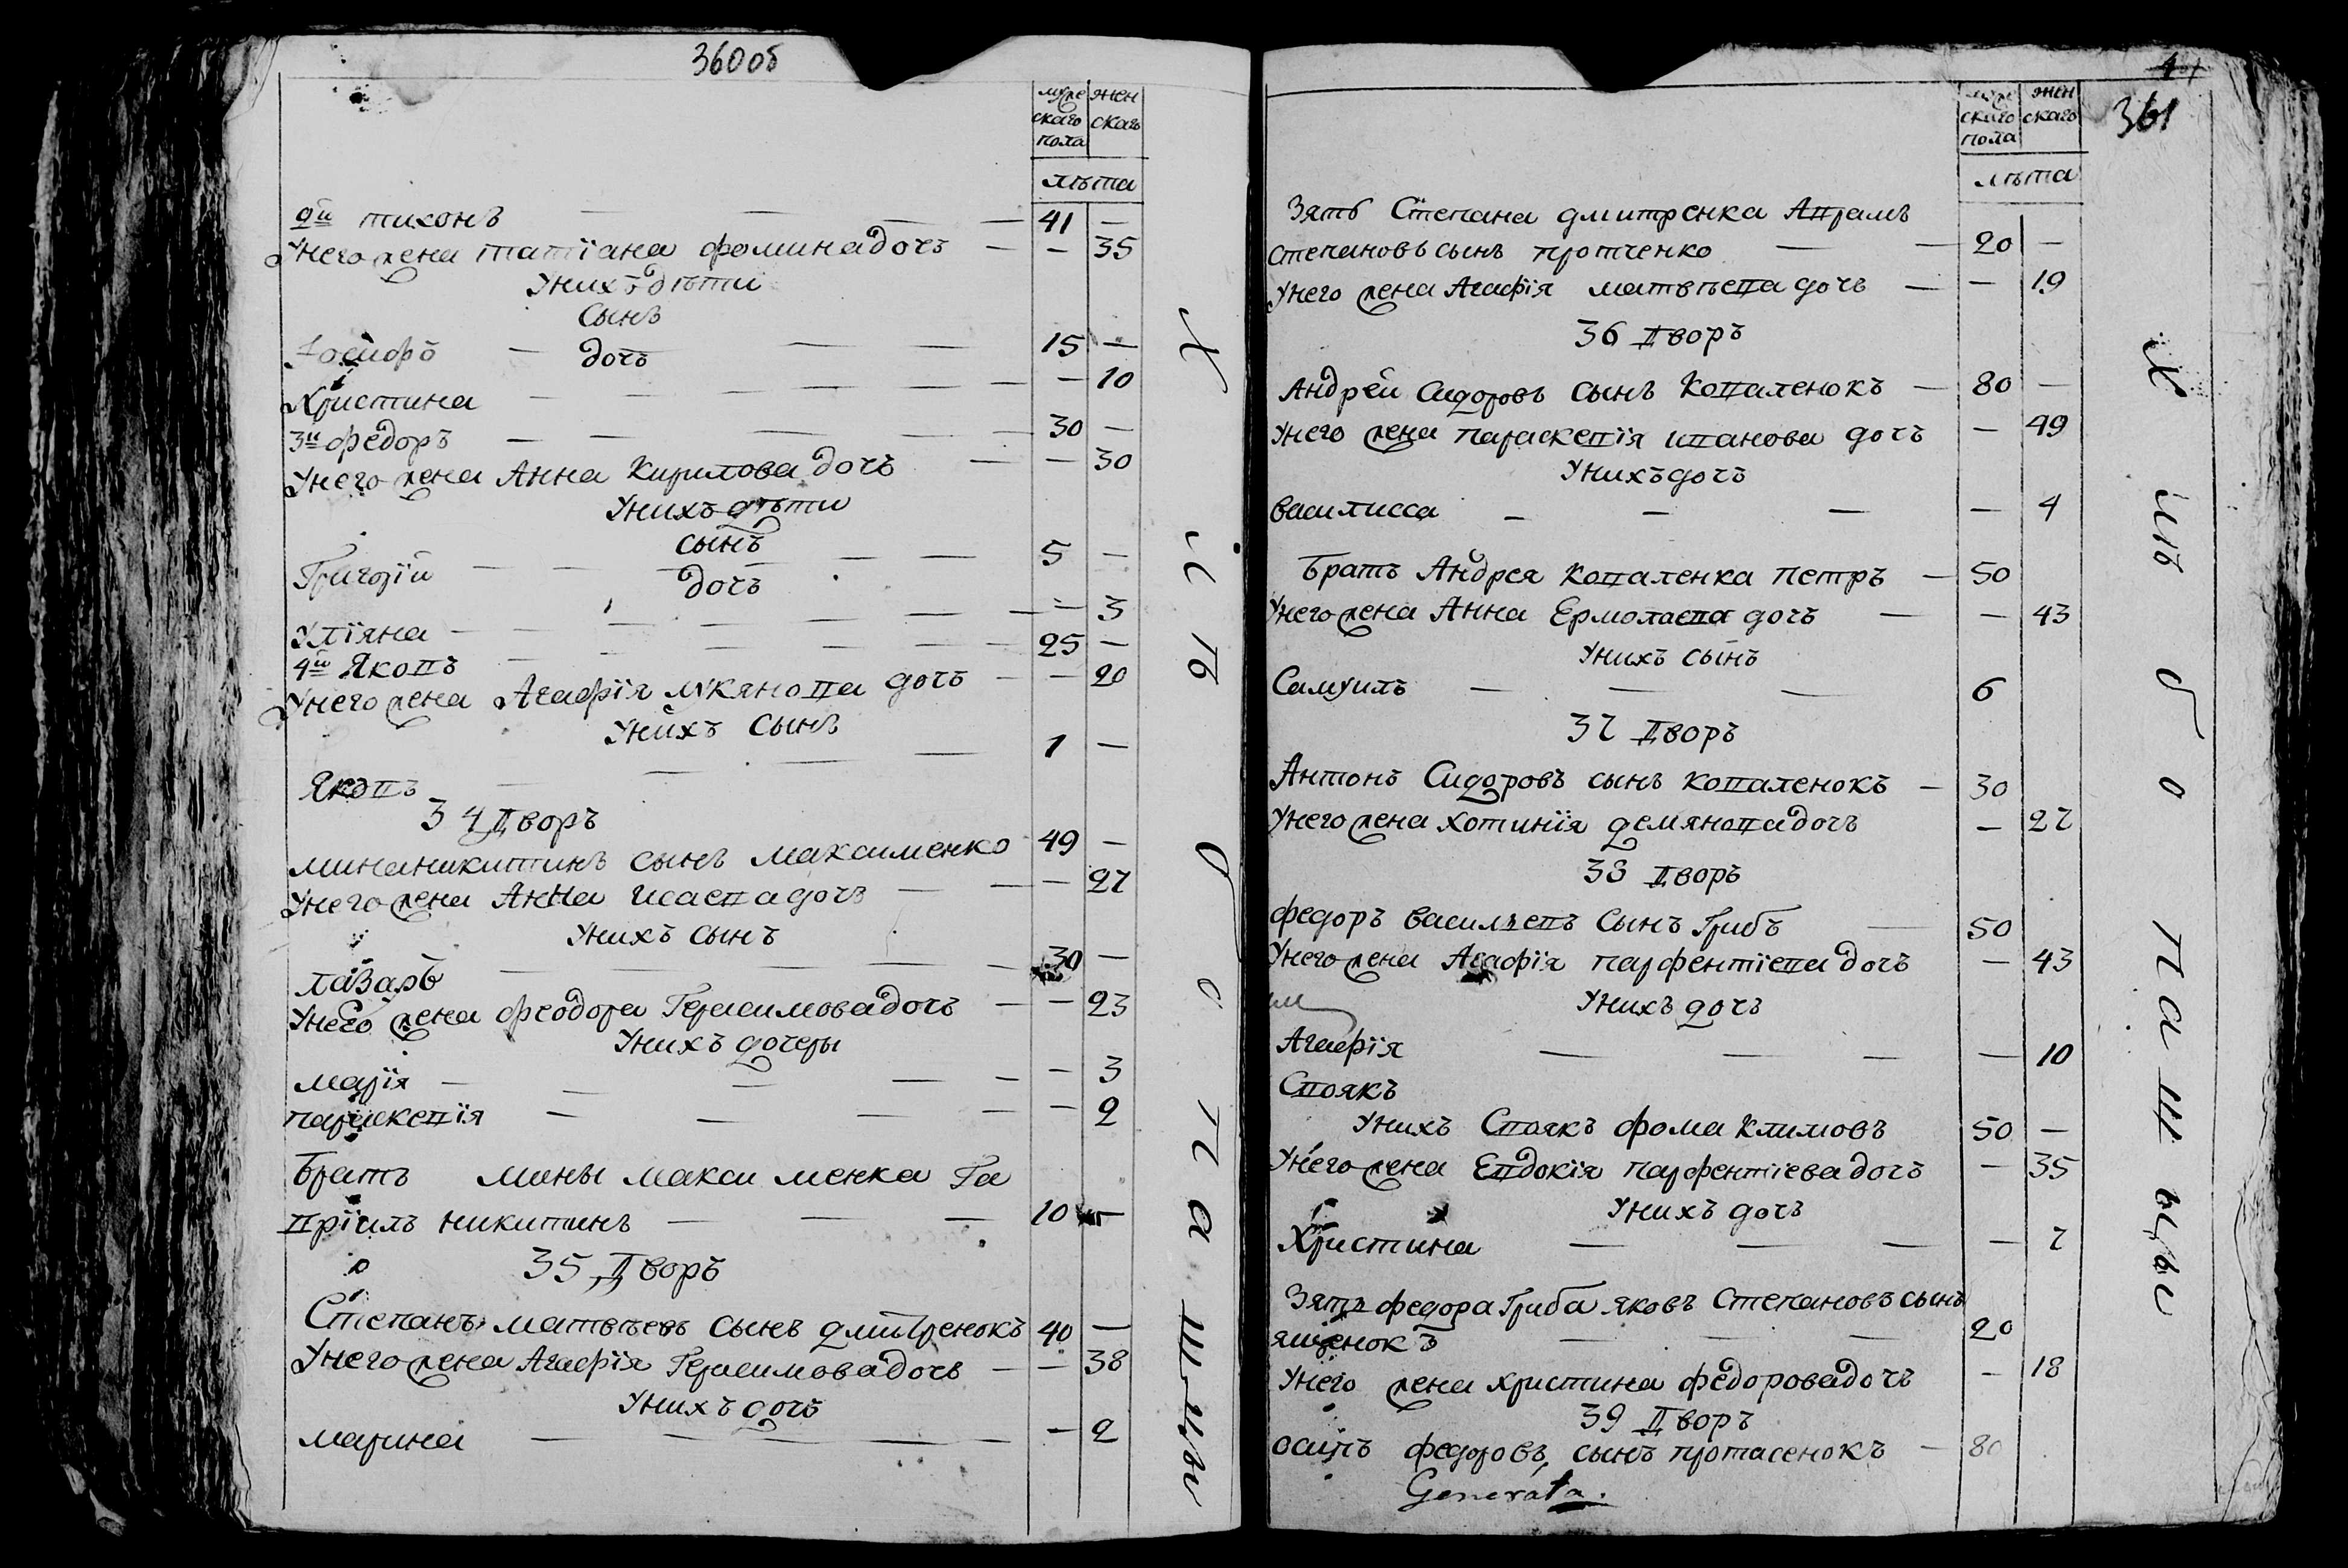 360об
муже ского пола
жен скаго
лѣта
2й тихонъ — — — — 41 —
Унего жена татїана фомина дочь — — 35
Унихъ дѣти
Сынъ
дочь
— — — 15 —
Христина — — — — — — 10
3й федоръ — — — — — 30 —
Унего жена Анна Кирилова дочь — — 30
Унихъ дѣти
сынъ
Григорїй — — — — — 5 —
дочь
Улїяна — — — — — — — 3
4й Яковъ — — — — — 25 —
Унего жена Агафїя лукянова дочь — — 20
Унихъ сынъ
Яковъ — — — — 1 —
34 Дворъ
мина никитинъ сынъ максименко 49 —
Унего жена Анна исаева дочь — — — 27
Унихъ сынъ
лазарь — — — — — 30 —
Унего жена феодора Герасимова дочь — — 23
Унихъ дочеры
марїя — — — — — — 3
параскевїя — — — — — 2
Братъ мины макси менка Га
врїилъ никитинъ — — — 10 —
35 Дворъ
Степанъ матвѣевъ сынъ дмитренокъ 40 —
Унего жена Агафїя Герасимова дочь — — 38
Унихъ дочь
марина — — — — — — 2
Хлѣбопашцы
361
муже ского пола
жен скаго
лѣта
Зять Степана дмитренка Аврамъ
степановъ сынъ протченко — — 20 —
Унего жена Агафїя матвѣева дочь — — 19
36 Дворъ
Андрей Сидоровъ сынъ Коваленокъ — 80 —
Унего жена параскевїя иванова дочь — 49
Унихъ дочь
василисса — — — — 4
Братъ Андрея коваленка петръ — 50
Унего жена Анна Ермолаева дочь — — 43
Унихъ сынъ
Самуилъ — — — 6
37 Дворъ
Антонъ Сидоровъ сынъ коваленокъ — 30
Унего жена хотинїя демянова дочь — 27
38 Дворъ
федоръ василъевъ сынъ Грибъ — 50
Унего жена Агафїя парфентїева дочь — 43
Унихъ дочь
Агафїя — — — — 10
Своякъ
Унихъ Своякъ фома климовъ 50 —
Унего жена Евдокїя парфентїева дочь — 35
Унихъ дочь
Христина — — — — 7
Зять федора Гриба яковъ Степановъ сынъ
ященокъ — — — 20
Унего жена христина федорова дочь — 18
39 Дворъ
осипъ федоровъ сынъ протасенокъ — 80
Generata.
Хлѣбопашцы